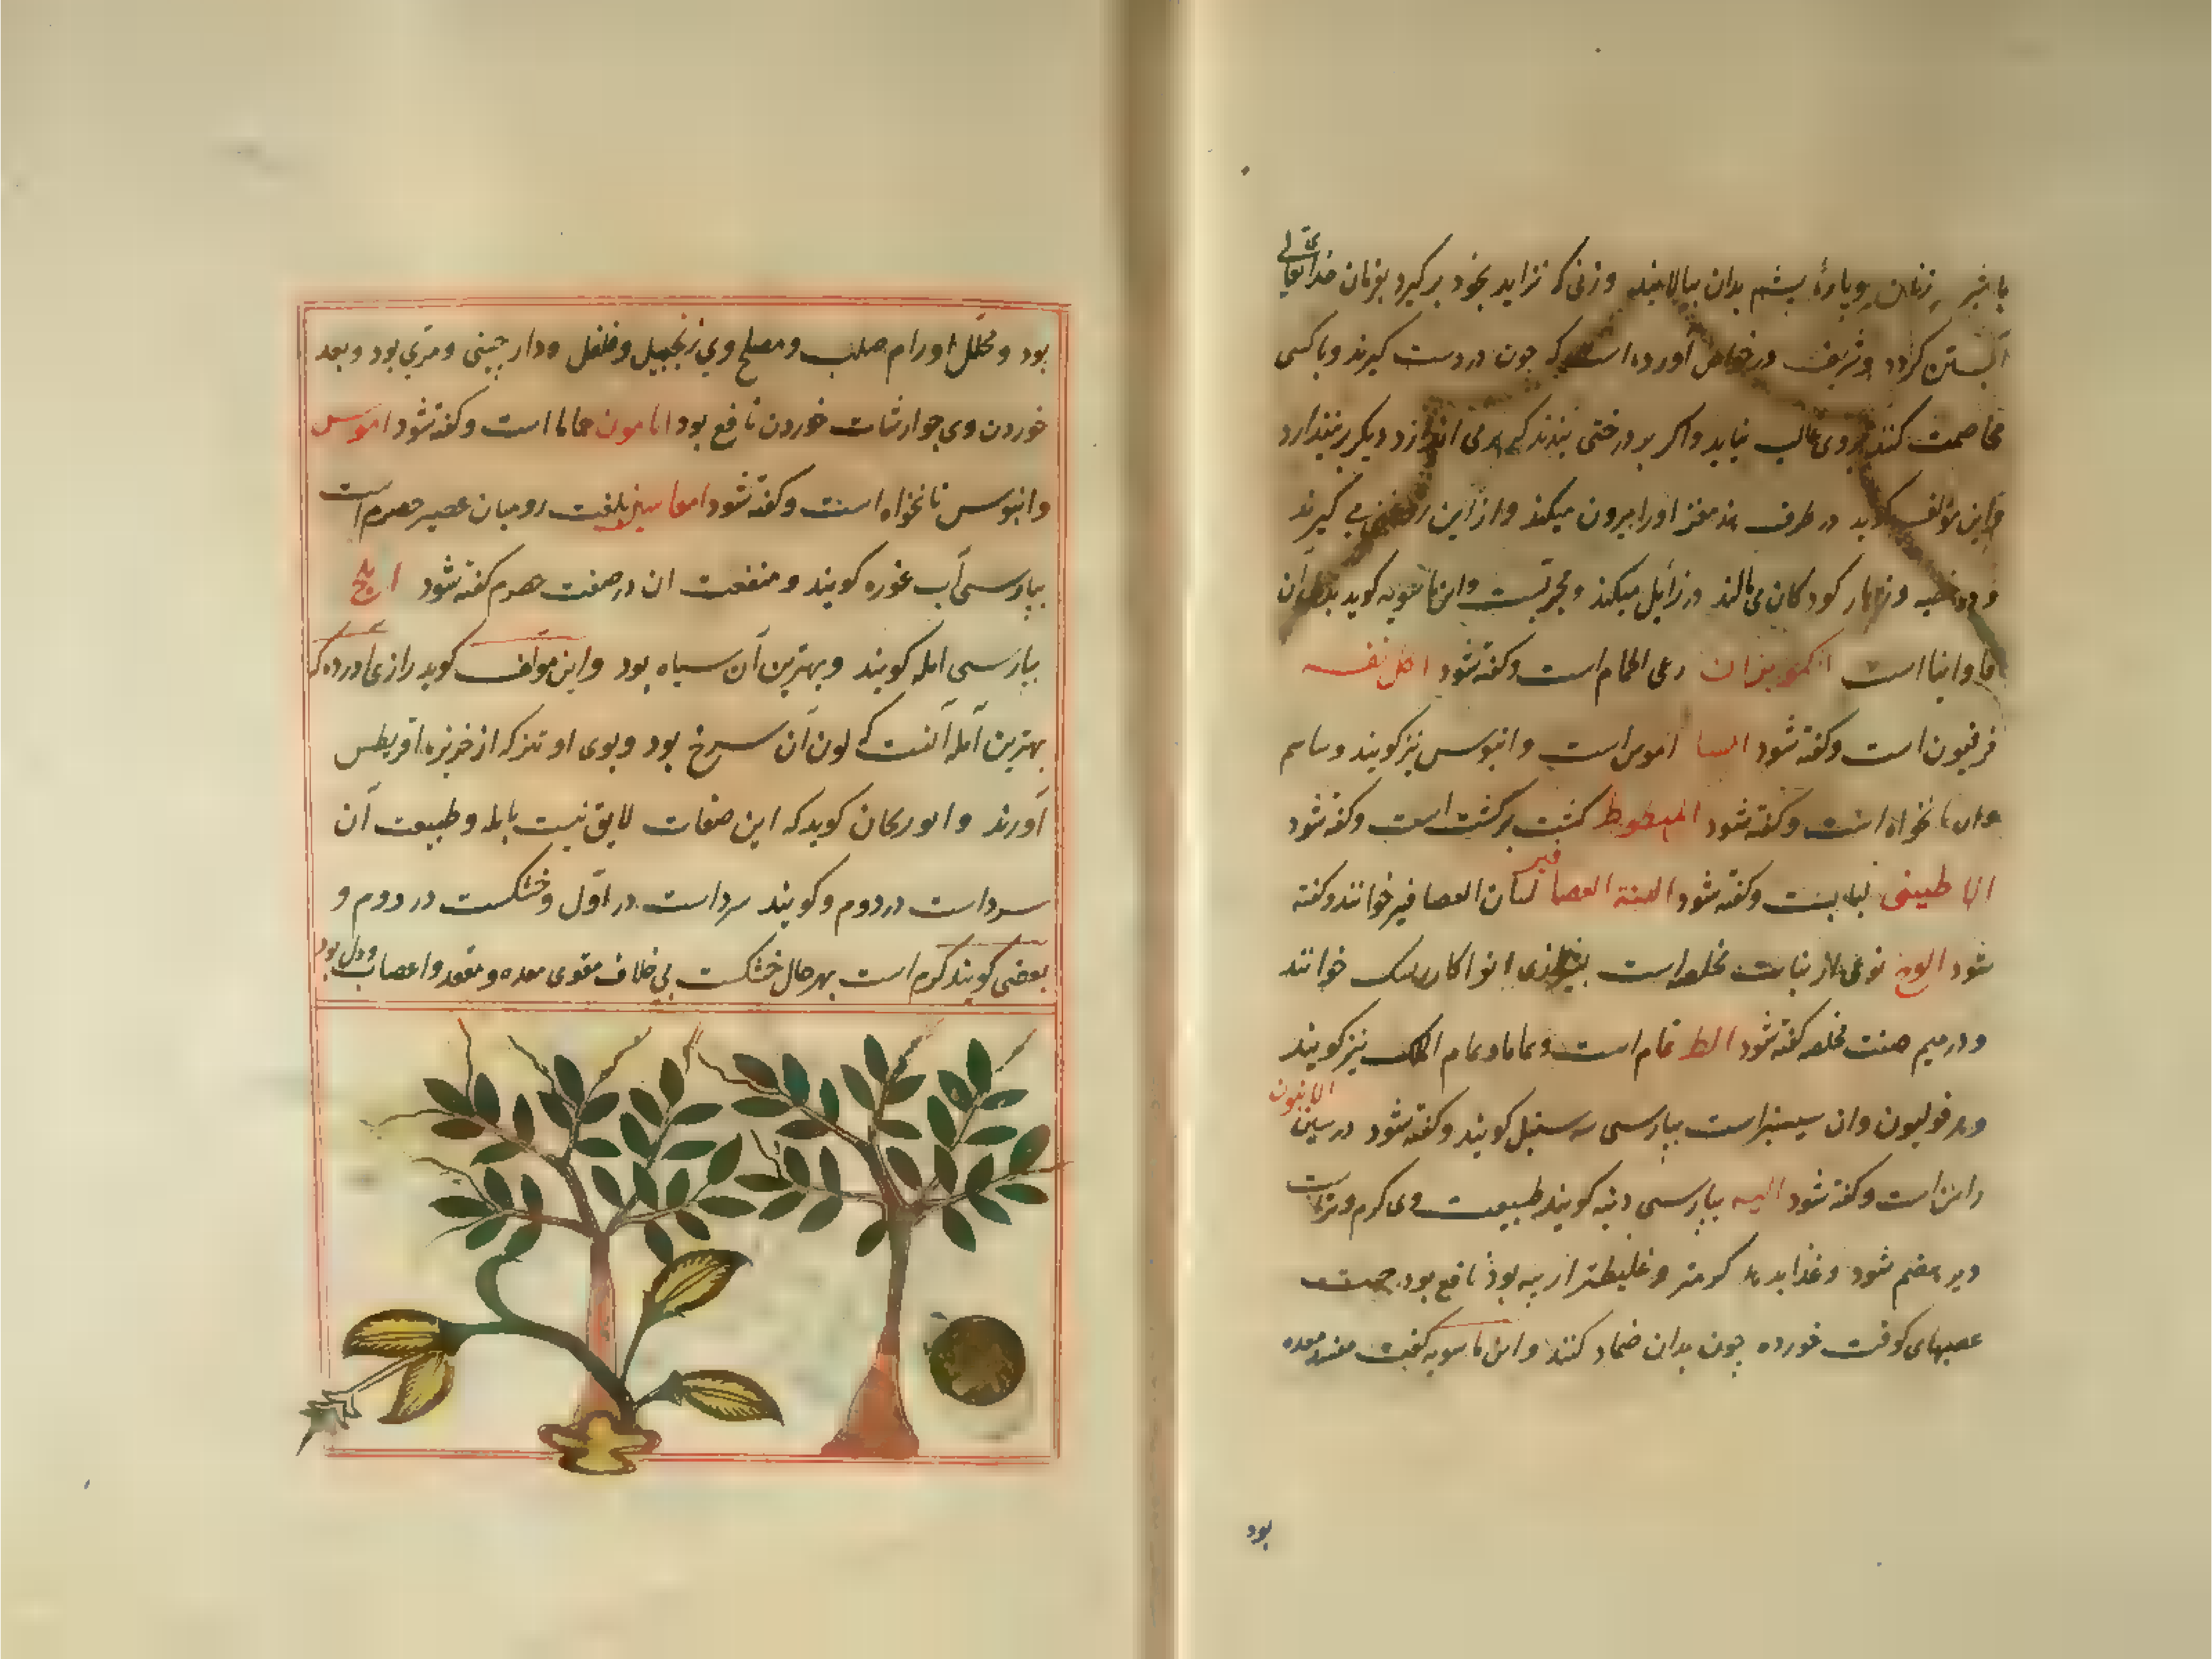 با شیر زنان و پارهٔ پشم بدان بیالایند و زنی که نزاید بخود برکیرد بفرمان خدایتعالی
آبستن کردد و شریف در خواص آورده است که چون در دست کیرند و با کسی
مخاصمت کنند بروی غالب نیاید و اکر بر درختی بندند که بر می اندازد دیکر نیندازد
و این مؤلف کوید در طرف هند مغز اورا بیرون میکند و از این روغن می کیرند
کودکان می مالند زایل میکند و مجربست و ابن ماسویه کوید بدل آن
فاوانیا است انکموبزان رعی الحمام است و کفته شود اکل نفسه
فرفیون است و کفته شود السا اموس است و انبوس نیز کویند و ساسم
وان نانخواه است و کفته شود المیطوط کشت برکشت است و کفته شود
الاطینی لبلابست و کفته شود السنة العصافیر لسان العصافیر خوانند و کفته
شود الوج نوعی از نبات مخلصه است بشیرازی انوا کارملک خوانند
و در میم صفت مخلصه کفته شود الط نمام است و نماما و نمام الملک نیز کویند
و هرفولیون وان سیسنبر است بپارسی سه سنبل کویند و کفته شود در سین الانیون
راسن است و کفته شود الیه بپارسی دنبه کویند طبیعت وی کرم و تر است
دیر هضم شود و غذا بد کرمتر و غلیظتر از پیه بود نافع بود جهت
عصبهای کوفت خورده چون بدان ضماد کنند و ابن ماسویه کفت مفسد معده
بود
بود و محلل اورام صلب و مصلح وی زنجبیل و فلفل و دارچینی و مری بود و بعد
خوردن وی جوارشات خوردن نافع بود امامون حماما است و کفته شود اموس
و انبوس نانخواه است و کفته شود امعاسین بلغت رومیان عصیر حصرم است
بپارسی آب غوره کویند و منفعت ان در صفت حصرم کفته شود املج
بپارسی امله کویند و بهترین آن سیاه بود و این مؤلف کوید رازی آورده که
بهترین آمله آنست که لون آن سرخ بود و بوی او تیز که از جزیره اقریطس
آورند و ابوریحان کوید که این صفات لایق نیست بامله و طبیعت آن
سرد است در دوم و کویند سرد است در اول و خشکست در دوم و
بعضی کویند کرم است بهر حال خشکست بی خلاف مقوی معده و مقعد و اعصاب و دل بود